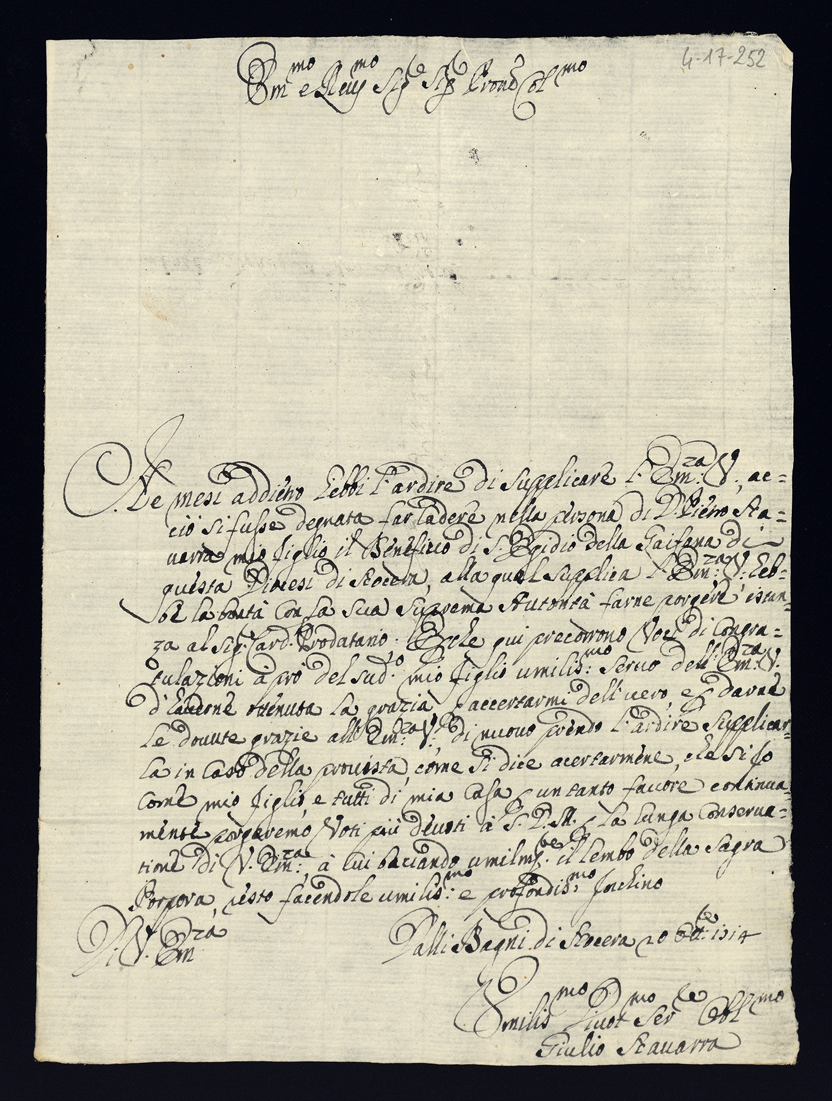 4-17-252
Em.mo e Reu.mo Sig.re Sig.re Prone Col.mo
Ne mesi addietro hebbi l'ardire di supplicare l'Em.za V., ac=
ciò si fusse degnata far cadere nella persona di D. Pietro Na=
uarra mio figlio il Beneficio di S. Egidio della Gaifana di
questa Diocesi di Nocera, alla qual supplica l'Em.za V. heb=
be la bontà con la sua suprema Autorità farne porgere istan=
za al Sig. Card. Prodatario. E che qui precorrono Voci di Congra=
tulazioni a prò del sud.o mio figlio umilis.mo seruo dell'Em.za V.
d'hauerne ottenuta la grazia, p accertarmi dell'uero, e p darne
le douute grazie all'Em.za V. di nuouo prendo l'ardire supplicar=
la in caso della prouista, come si dice acertarmene, che sì io
come mio figlio, e tutti di mia Casa p un tanto fauore continua=
mente porgeremo Voti più deuoti à S. D. M. p la lunga conserua=
tione di V. Em.za, à cui baciando umilm.te il lembo della Sagra
Porpora, resto facendole umilis.mo e profondis.mo Inchino
Di V. Em.za
Dalli Bagni di Nocera 20 Ott.re 1714
Vmilis.mo Diuot.mo Ser.re Obl.mo
Giulio Nauarra